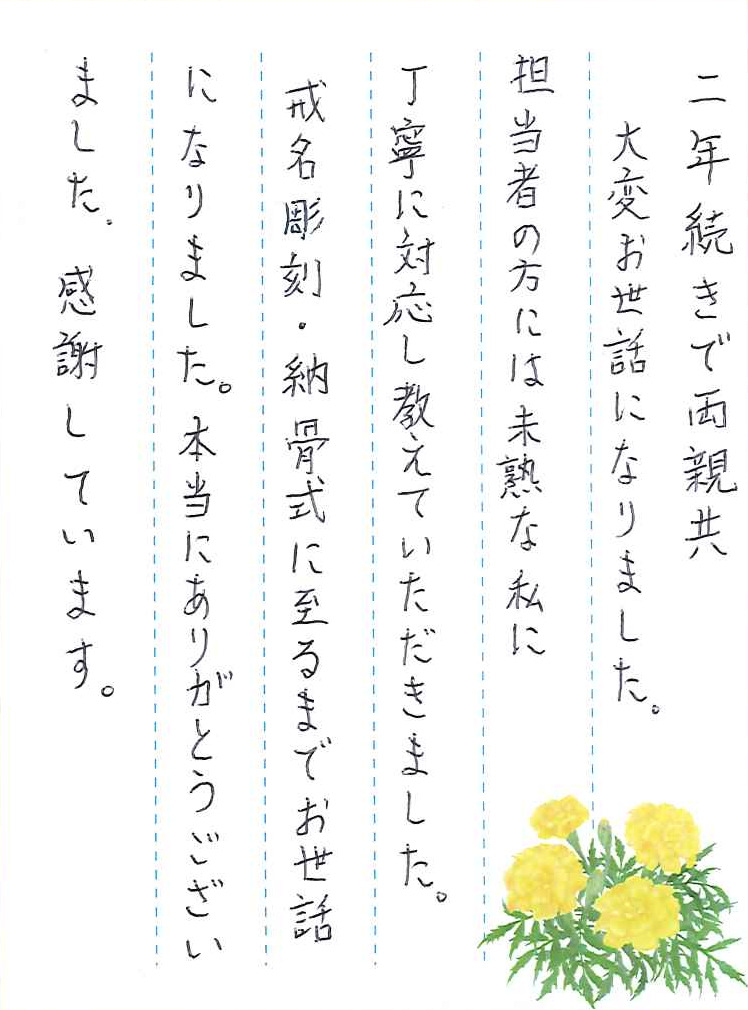 二年続きで両親共
大変お世話になりました。
担当者の方には未熟な私に
丁寧に対応し教えていただきました。
戒名彫刻・納骨式に至るまでお世話
になりました。本当にありがとうござい
ました。感謝しています。